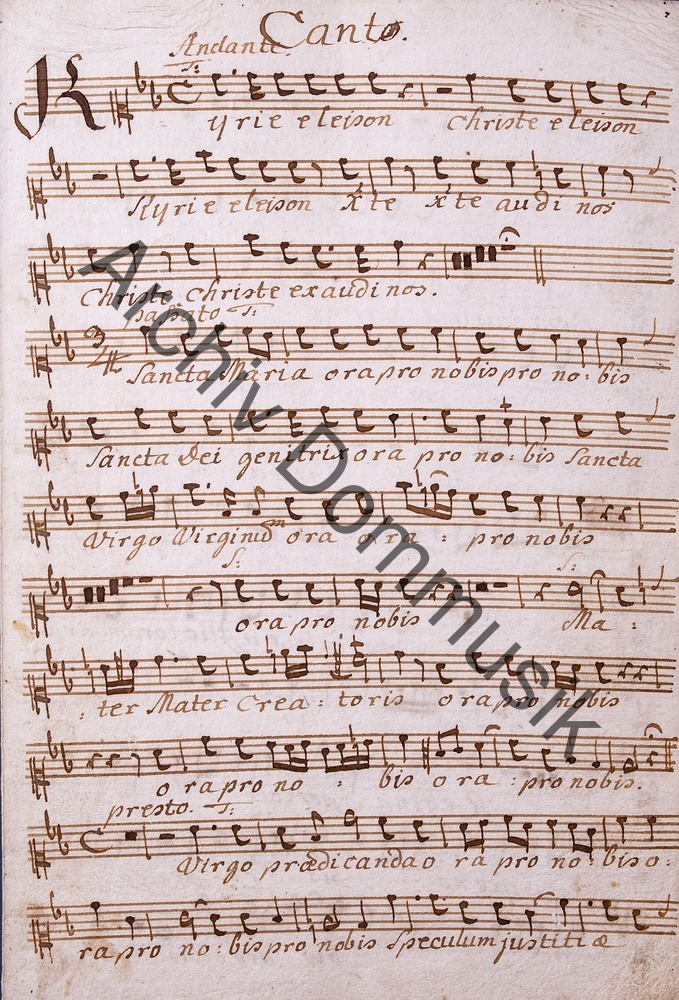 Canto.
Andante.
T:
Kyrie eleison Christe eleison
Kyrie eleison X̃te x̃te audi nos
Christe Christe exaudi nos.
T:
3/4
Sancta Maria ora pro nobis pro no: bis
Sancta Dei genitrix ora pro no: bis Sancta
Virgo Virginum ora ora : pro nobis
S: S:
ora pro nobis Ma :
: ter Mater Crea : toris ora pro nobis
ora pro no : bis ora : pro nobis.
presto. T:
Virgo prædicanda o ra pro no: bis o:
ra pro no: bis pro nobis Speculum justitiæ
Archiv Dommusik